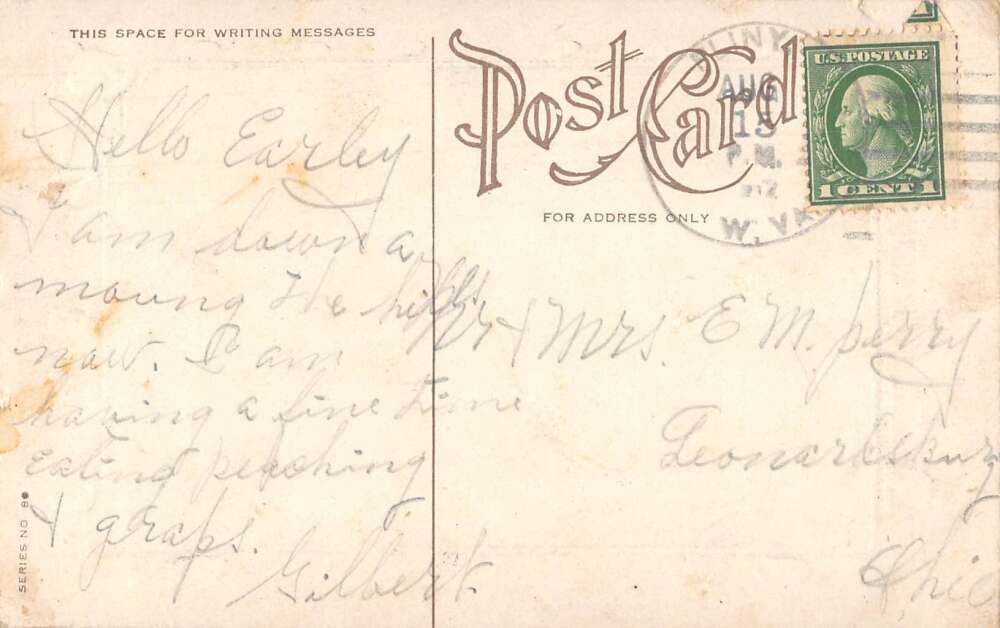 THIS SPACE FOR WRITING MESSAGES
Post Card
FOR ADDRESS ONLY
U.S. POSTAGE
1 CENT 1
AUG
15
P.M.
W. VA
Hello Earley
I am down a
moung the hills
now. I am
having a fine time
Eating peaching
& graps.
Gilbert
Mr & Mrs. E M. perry
Leonardsburg
Ohio
SERIES NO 8